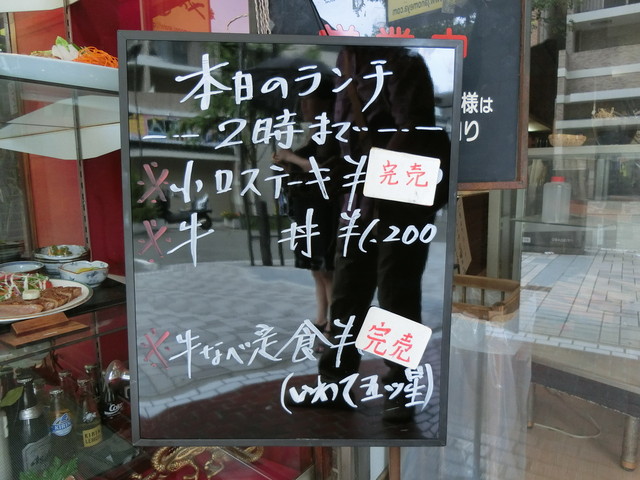 本日のランチ
2時まで
※小口ステーキ¥ 完売
※牛 丼 ¥1.200
※牛なべ定食¥ 完売
(いわて五ツ星)
様は
り